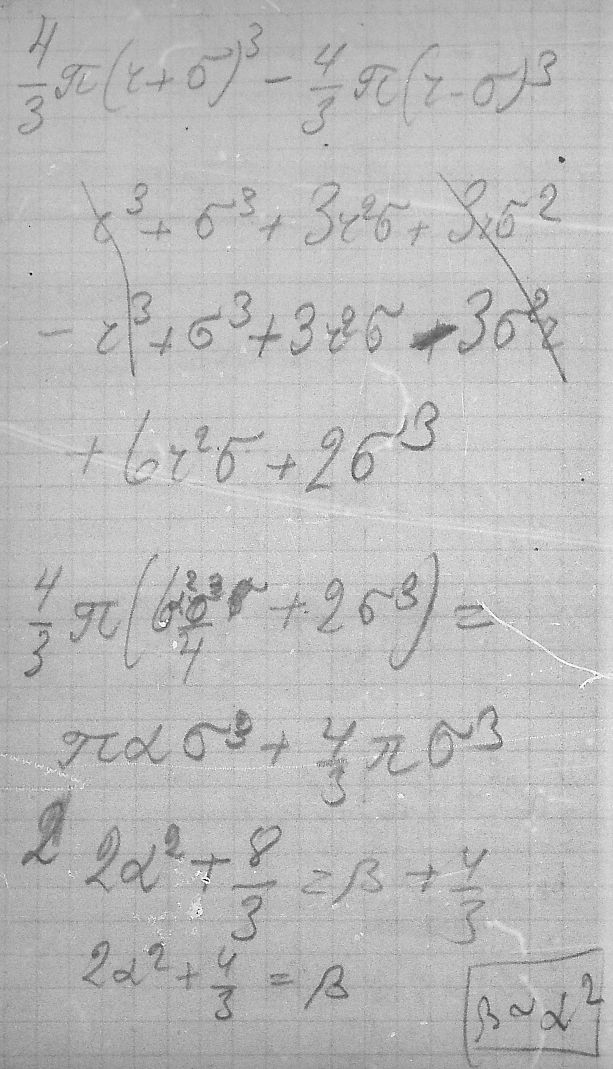 4/3 π(r+σ)³ − 4/3 π(r−σ)³
r³ + σ³ + 3r²σ + 3rσ²
− r³ + σ³ + 3r²σ − 3σ²r
+ 6r²σ + 2σ³
4/3 π( /4 + 2σ³) =
πασ³ + 4/3 πσ³
2 2α² + 8/3 = β + 4/3
2α² + 4/3 = β
β ~ α²